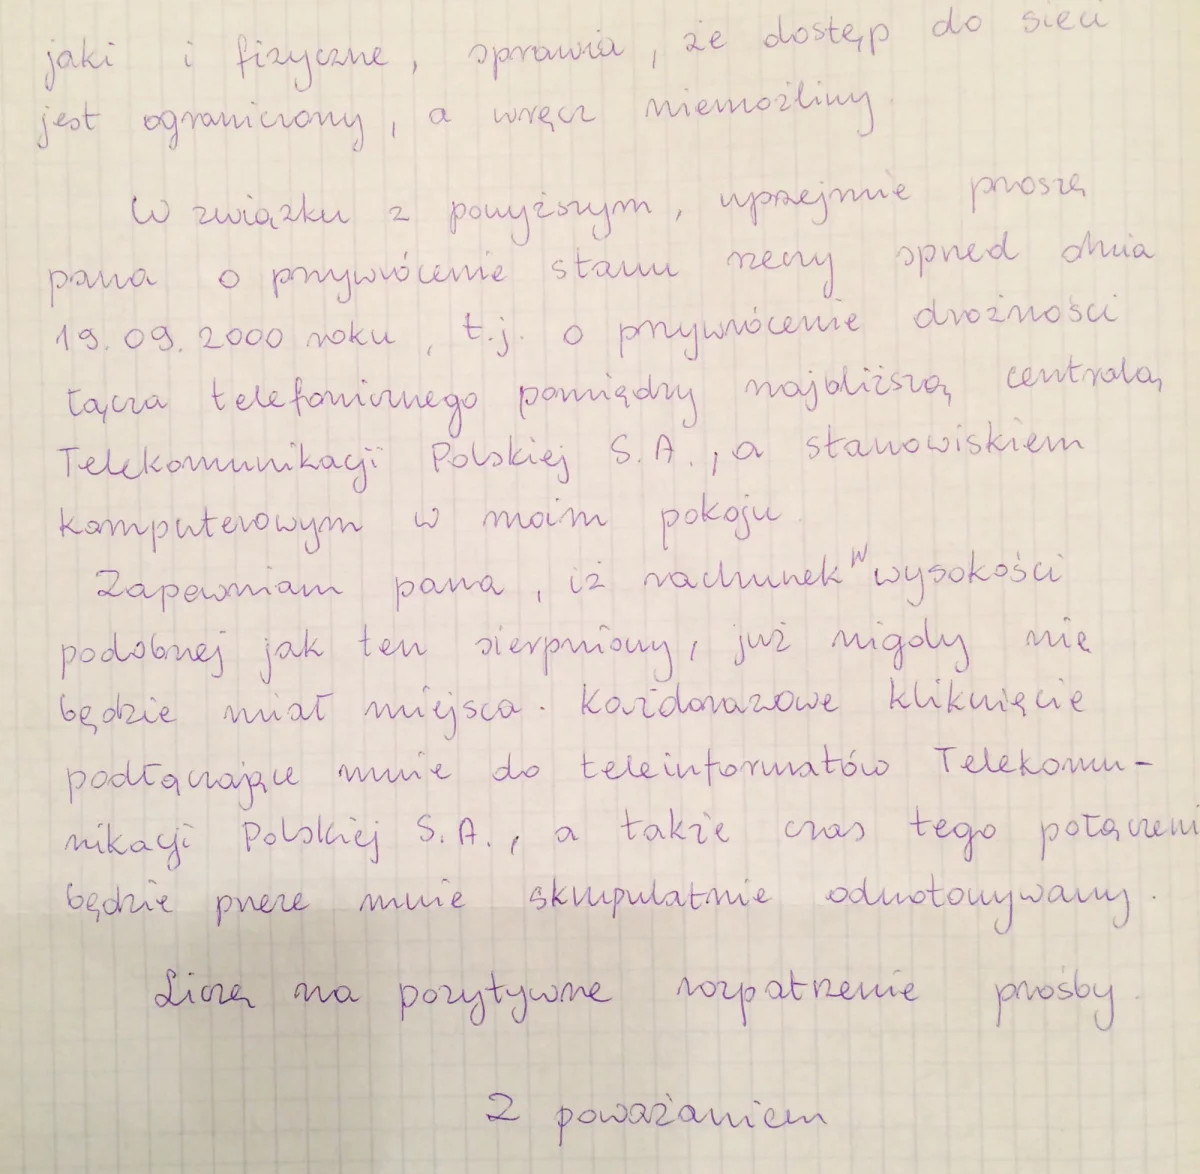 jaki i fizyczne, sprawia, że dostęp do sieci
jest ograniczony, a wręcz niemożliwy.
W związku z powyższym, uprzejmie proszę
pana o przywrócenie stanu rzeczy sprzed dnia
19.09.2000 roku, t.j. o przywrócenie drożności
łącza telefonicznego pomiędzy najbliższą centralą
Telekomunikacji Polskiej S.A., a stanowiskiem
komputerowym w moim pokoju.
Zapewniam pana, iż rachunek w wysokości
podobnej jak ten sierpniowy, już nigdy nie
będzie miał miejsca. Każdorazowe kliknięcie
podłączające mnie do teleinformatów Telekomu-
nikacji Polskiej S.A., a także czas tego połączeni
będzie przeze mnie skrupulatnie odnotowywany.
Liczę na pozytywne rozpatrzenie prośby.
Z poważaniem